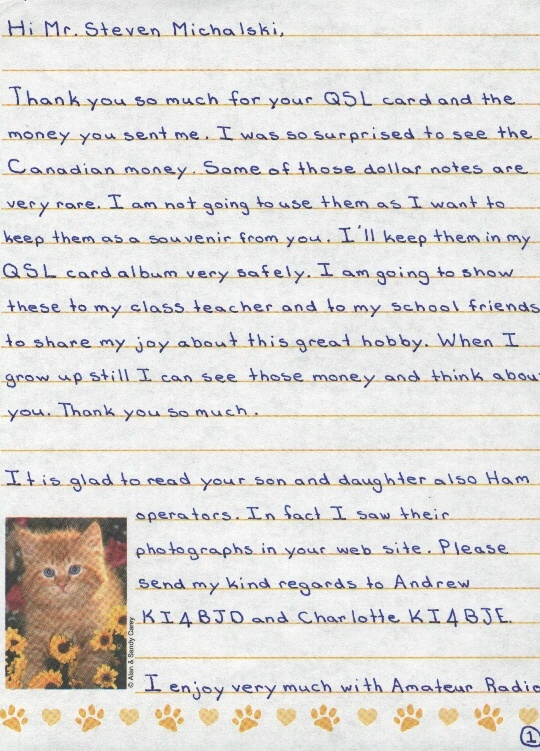 Hi Mr. Steven Michalski,
Thank you so much for your QSL card and the
money you sent me. I was so surprised to see the
Canadian money. Some of those dollar notes are
very rare. I am not going to use them as I want to
keep them as a souvenir from you. I'll keep them in my
QSL card album very safely. I am going to show
these to my class teacher and to my school friends
to share my joy about this great hobby. When I
grow up still I can see those money and think abou
you. Thank you so much.
It is glad to read your son and daughter also Ham
operators. In fact I saw their
photographs in your web site. Please
send my kind regards to Andrew
KI4BJD and Charlotte KI4BJE.
© Alan & Sandy Carey
I enjoy very much with Amateur Radio
1